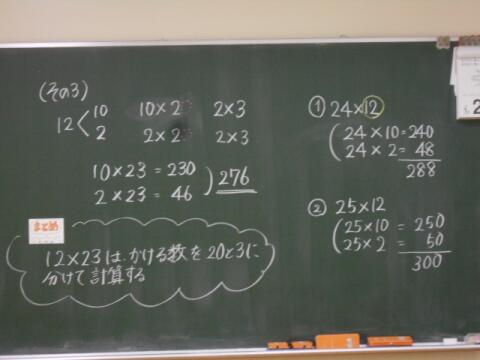 (その3)
12 < 10 10×2 2×3
2 2×2 2×3
10×23=230
2×23=46 ) 276
まとめ
12×23は、かける数を20と3に
分けて計算する
① 24×12
( 24×10=240
24×2=48
288
② 25×12
( 25×10=250
25×2=50
300
2